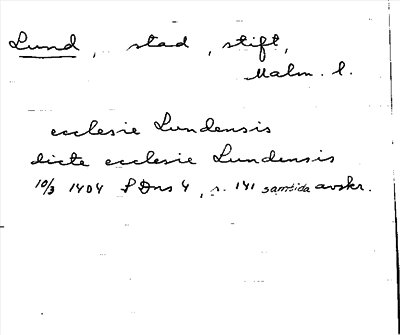 Lund, stad, stift,
Malm. l.
ecclesie Lundensis
dicte ecclesie Lundensis
10/3 1404 SDns 4, s. 141 samtida avskr.